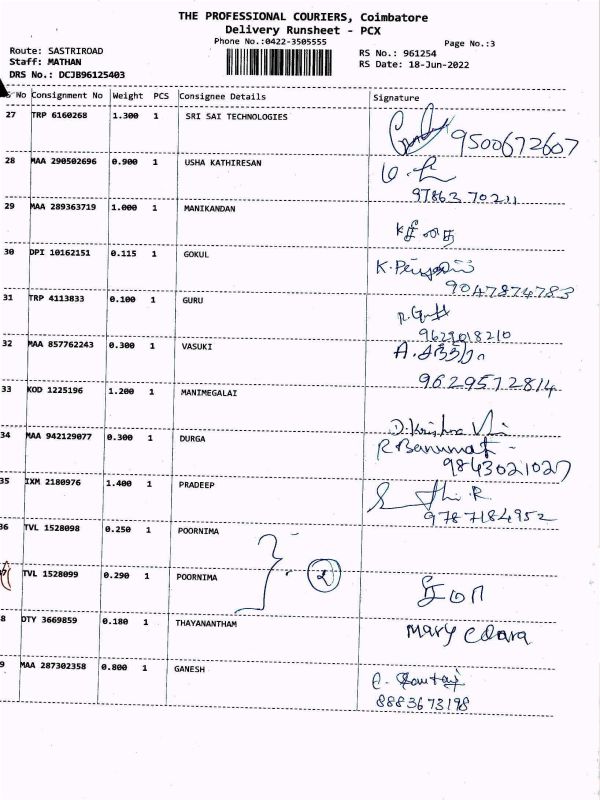 THE PROFESSIONAL COURIERS, Coimbatore
Delivery Runsheet - PCX
Phone No.:0422-3505555
Page No.:3
Route: SASTRIROAD
Staff: MATHAN
DRS No.: DCJB96125403
RS No.: 961254
RS Date: 18-Jun-2022
No Consignment No Weight PCS Consignee Details Signature
27 TRP 6160268 1.300 1 SRI SAI TECHNOLOGIES
9500672607
28 MAA 290502696 0.900 1 USHA KATHIRESAN
97863 70211
29 MAA 289363719 1.000 1 MANIKANDAN
30 DPI 10162151 0.115 1 GOKUL
K.
9047874783
31 TRP 4113833 0.100 1 GURU
9629018210
32 MAA 857762243 0.300 1 VASUKI
A.
9629572814
33 KOD 1225196 1.200 1 MANIMEGALAI
D. Krishna
34 MAA 942129077 0.300 1 DURGA
R Banumati
9843021027
35 IXM 2180976 1.400 1 PRADEEP
9787184952
36 TVL 1528098 0.250 1 POORNIMA
2
TVL 1528099 0.290 1 POORNIMA
உமா
8 OTY 3669859 0.180 1 THAYANANTHAM
Mary Clara
9 MAA 287302358 0.800 1 GANESH
8883673198